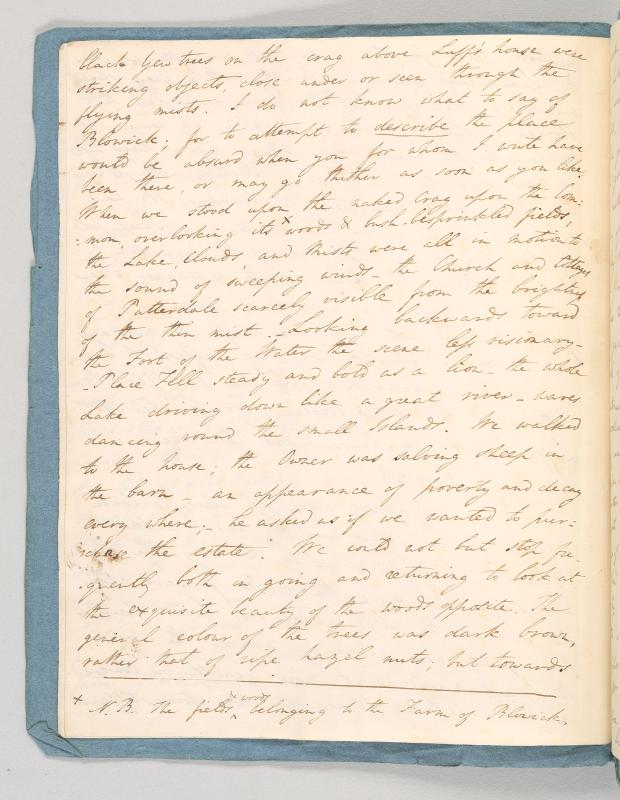 black Yew trees on the crag above Luff's house were
striking objects, close under or seen through the
flying mists. I do not know what to say of
Blowick; for to attempt to describe the place
would be absurd when you for whom I write have
been there, or may go thither as soon as you like.
When we stood upon the naked Crag upon the Com:
:mon, overlooking its x woods & bush-besprinkled fields,
the Lake, Clouds, and Mists were all in motion to
the sound of sweeping winds - the Church and Cottages
of Patterdale scarcely visible from the brightness
of the thin mist - Looking backwards toward
the Foot of the Water the scene less visionary -
- Place Fell steady and bold as a lion - the whole
Lake driving down like a great river - waves
dancing round the small Islands. We walked
to the house; the Owner was salving sheep in
the barn - an appearance of poverty and decay
every where; - he asked us if we wanted to pur:
:chase the estate. We could not but stop fre
:quently both in going and returning to look at
the exquisite beauty of the woods opposite. The
general colour of the trees was dark brown,
rather that of ripe hazel nuts; but towards
x N.B. the fields & woods belonging to the Farm of Blowick.